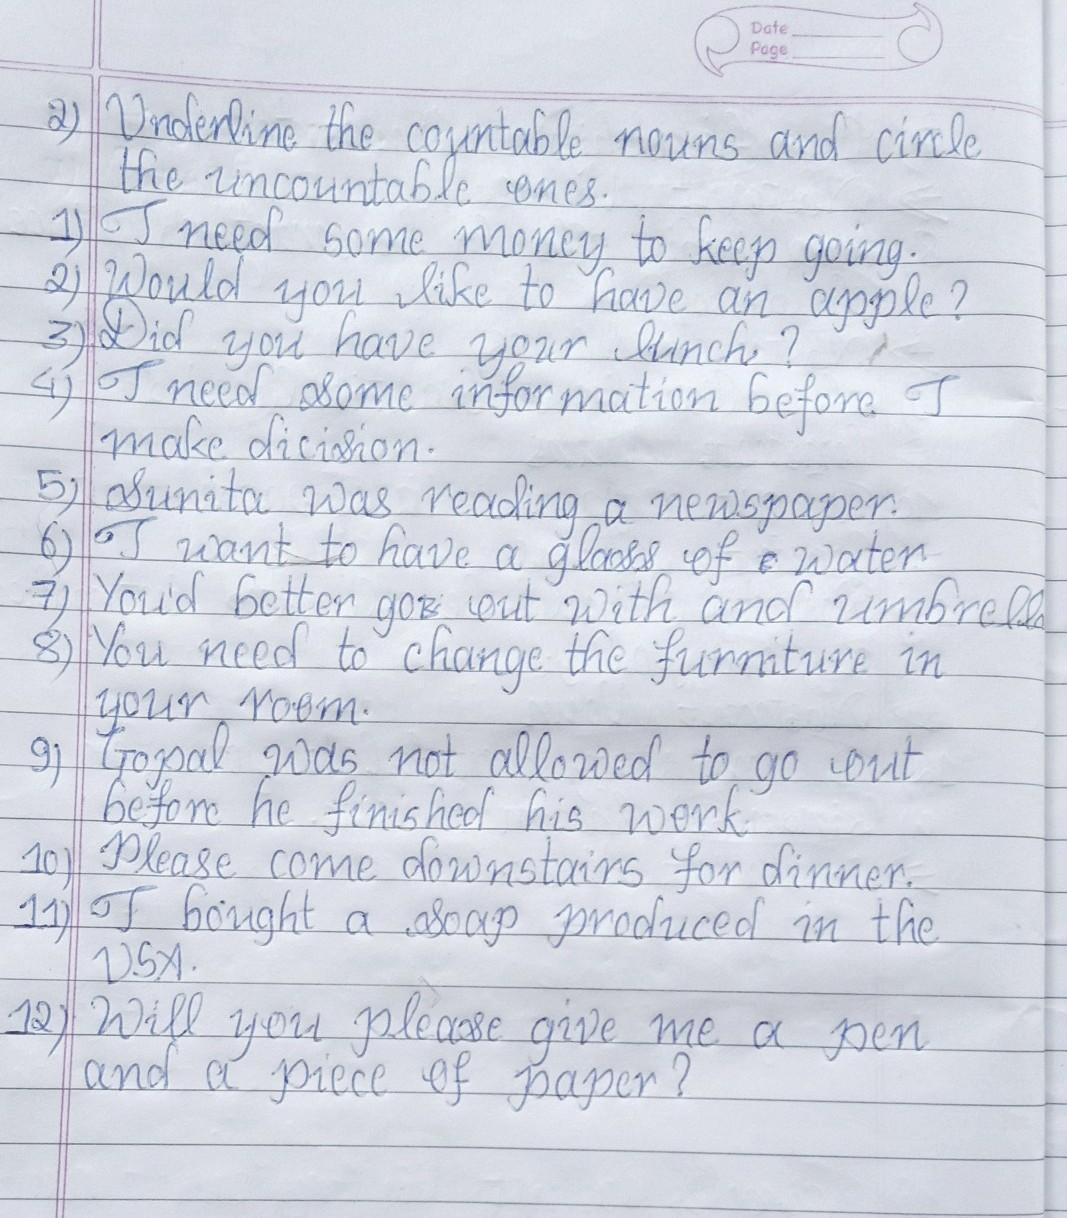 Date
Page
2) Underline the countable nouns and circle
the uncountable ones.
1) I need some money to keep going.
2) Would you like to have an apple?
3) Did you have your lunch?
4) I need some information before I
make dicision.
5) Sunita was reading a newspaper.
6) I want to have a glass of water
7) You'd better go out with and umbrella
8) You need to change the furniture in
your room.
9) Gopal was not allowed to go out
before he finished his work.
10) Please come downstairs for dinner.
11) I bought a soap produced in the
USA.
12) Will you please give me a pen
and a piece of paper?